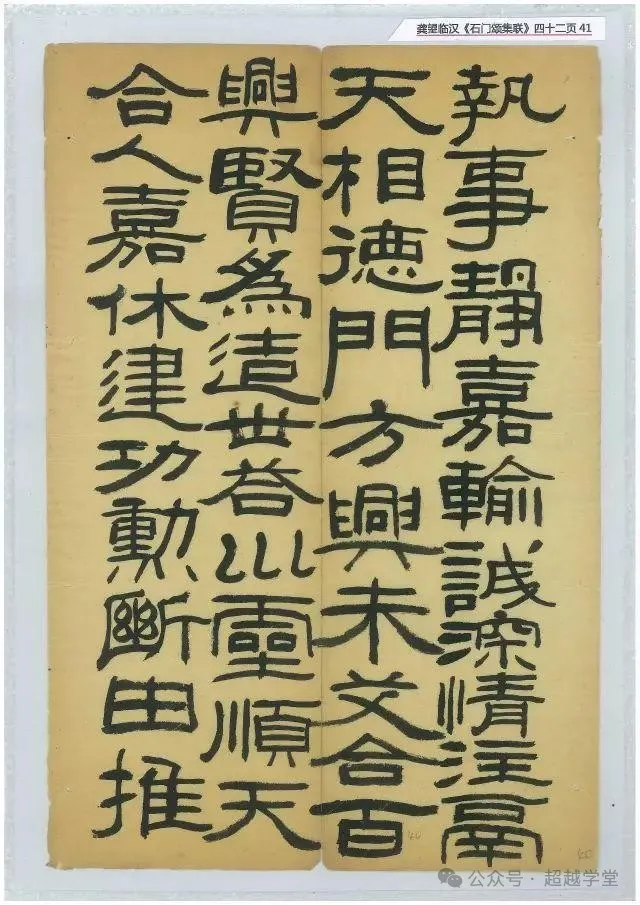 龚望临汉《石门颂集联》四十二页 41
執事靜嘉輸誠深情注鬲
天相德門方興未艾合百
興賢為造世谷川靈順天
合人嘉休建功勳斷由推
公众号·超越学堂